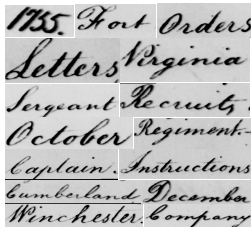 1755. Fort Orders
Letters, Virginia
Sergeant Recruits,
October Regiment.
Captain. Instructions
Cumberland December
Winchester. Company